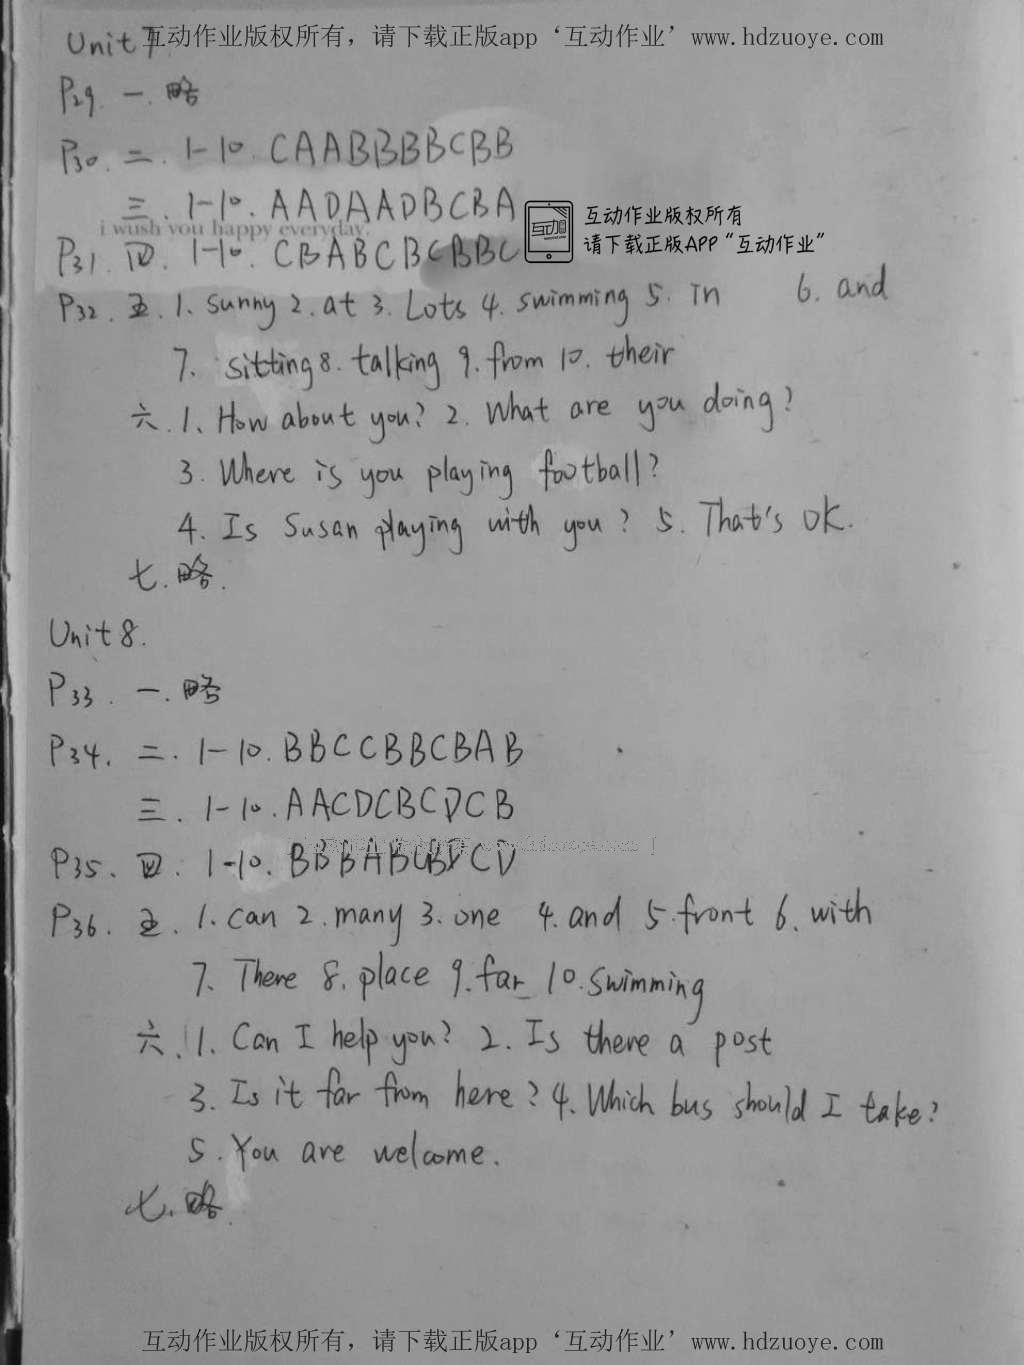 Unit 7
互动作业版权所有，请下载正版app‘互动作业’www.hdzuoye.com
P29. 一. 略
P30. 二. 1-10. CAABBBBCBB
三. 1-10. AADAADBCBA
互动作业版权所有
i wish you happy everyday.
请下载正版APP“互动作业”
P31. 四. 1-10. CBABCBCBBC
P32. 五. 1. sunny 2. at 3. Lots 4. swimming 5. in 6. and
7. sitting 8. talking 9. from 10. their
六. 1. How about you? 2. What are you doing?
3. Where is you playing football?
4. Is Susan playing with you? 5. That's OK.
七. 略.
Unit 8.
P33. 一. 略
P34. 二. 1-10. BBCCBBCBAB
三. 1-10. AACDCBCDCB
P35. 四. 1-10. BBBAB CD
P36. 五. 1. can 2. many 3. one 4. and 5. front 6. with
7. There 8. place 9. far 10. swimming
六. 1. Can I help you? 2. Is there a post
3. Is it far from here? 4. Which bus should I take?
5. You are welcome.
七. 略.
互动作业版权所有，请下载正版app‘互动作业’www.hdzuoye.com